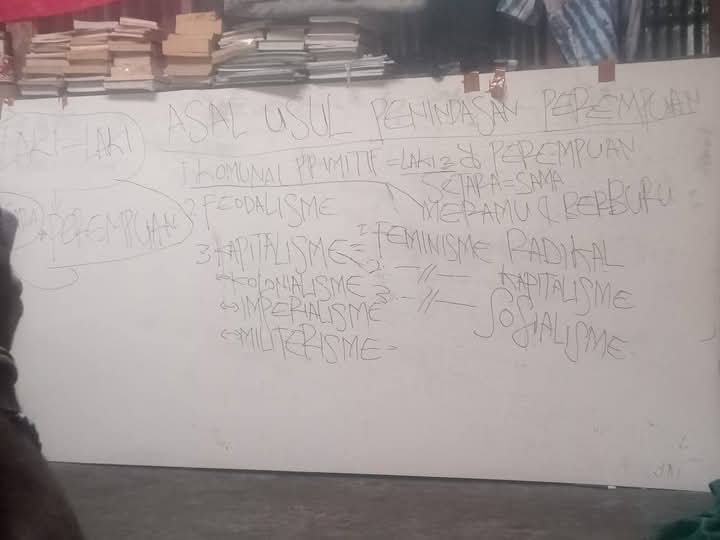 ASAL USUL PENINDASAN PEREMPUAN
LAKI-LAKI
PEREMPUAN
1. KOMUNAL PRYMITIF = LAKI2 & PEREMPUAN
SETARA = SAMA
MERAMU & BERBURU
2. FEODALISME
3. KAPITALISME = 1. FEMINISME RADIKAL
↔ KOLONIALISME 2. —//— KAPITALISME
↔ IMPERIALISME 3. —//— SOSIALISME
↔ MILITERISME =